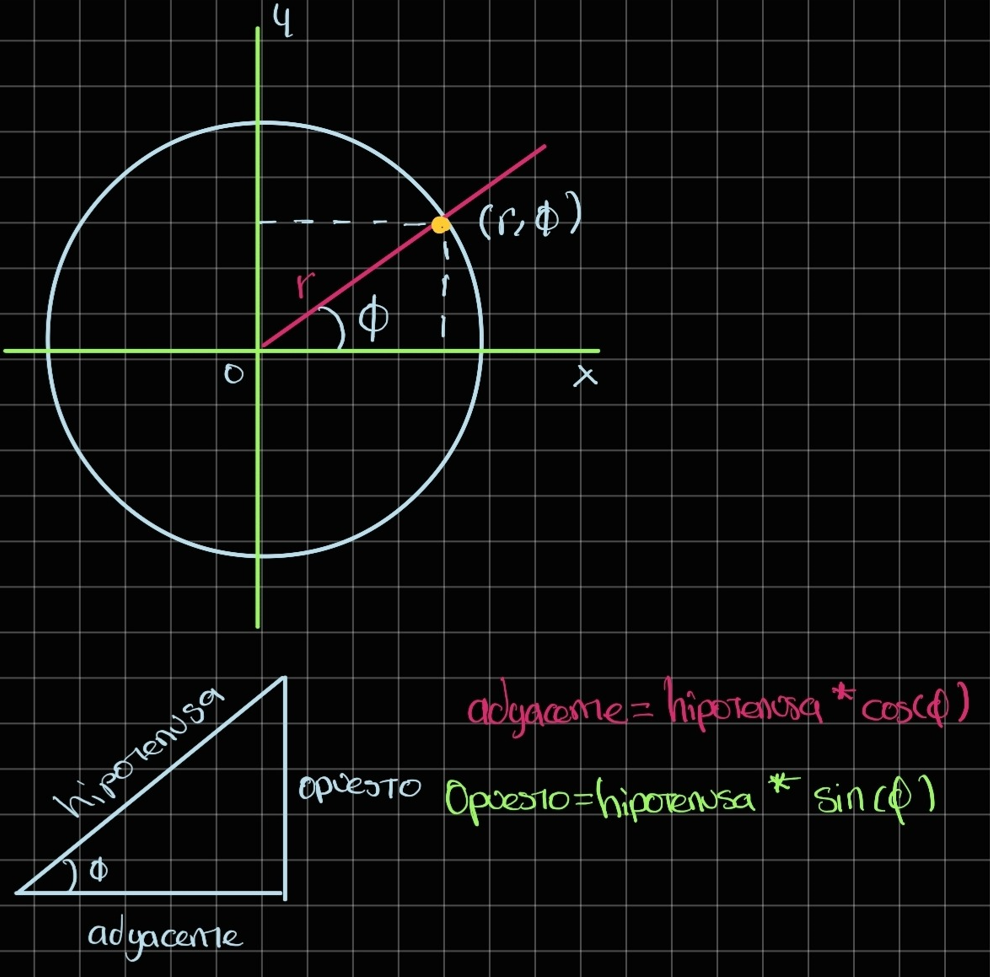 y
(r, ϕ)
r
ϕ
O
x
hipotenusa
opuesto
ϕ
adyacente
adyacente = hipotenusa * cos(ϕ)
Opuesto = hipotenusa * sin(ϕ)